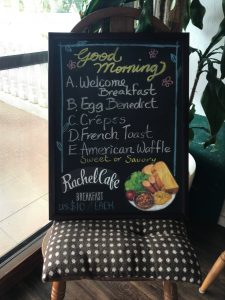 Good
Morning
A. Welcome
Breakfast
B. Egg Benedict
C. Crêpes
D. French Toast
E American Waffle
Sweet or Savory
Rachel Cafe
BREAKFAST
$10 / EACH